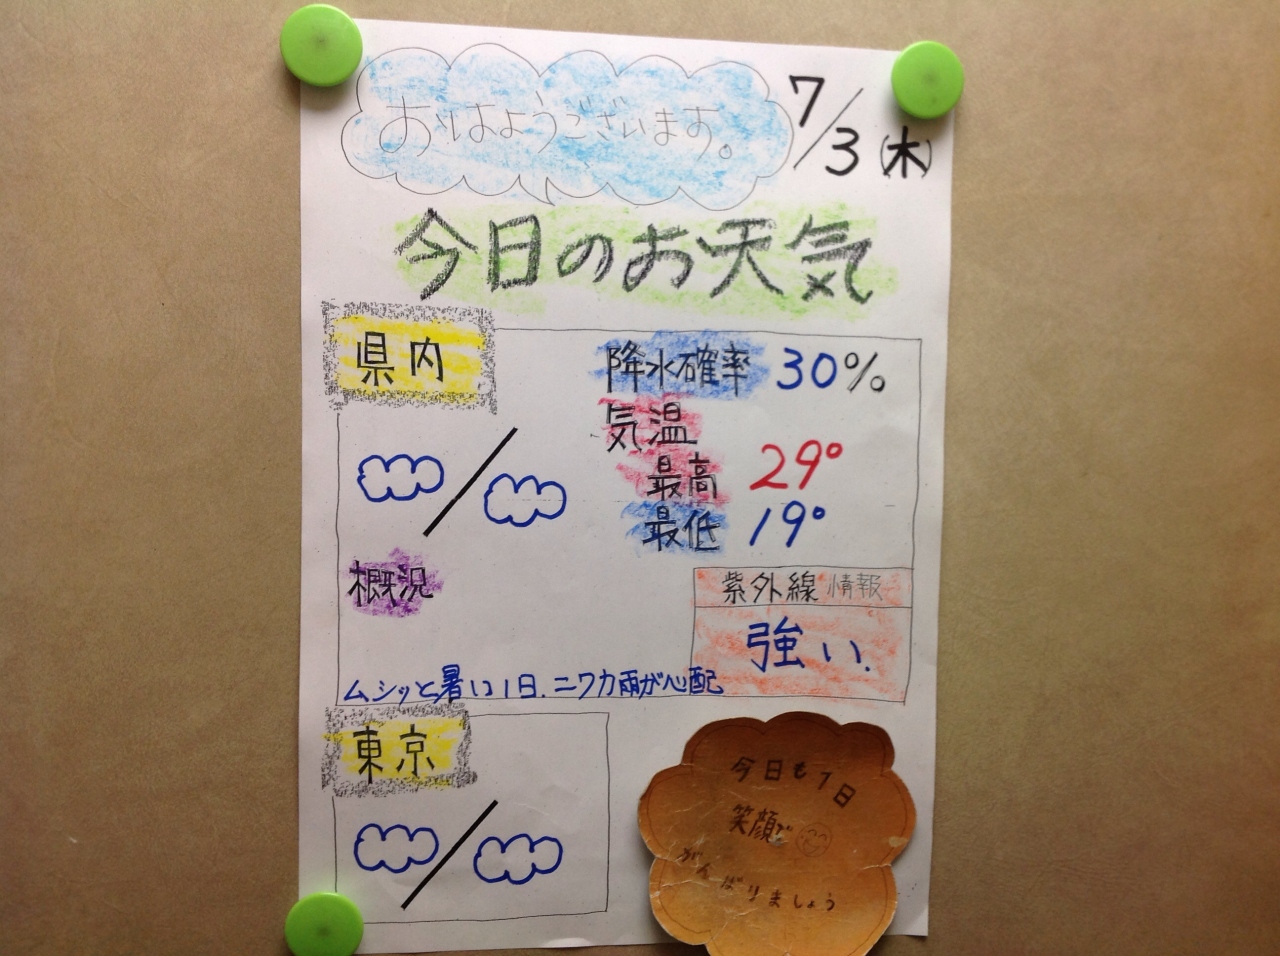 おはようございます。
7/3(木)
今日のお天気
県内
降水確率 30%
気温
最高 29°
最低 19°
概況
紫外線情報
強い
ムシッと暑い1日.ニワカ雨が心配
東京
今日も1日
笑顔で
がんばりましょう